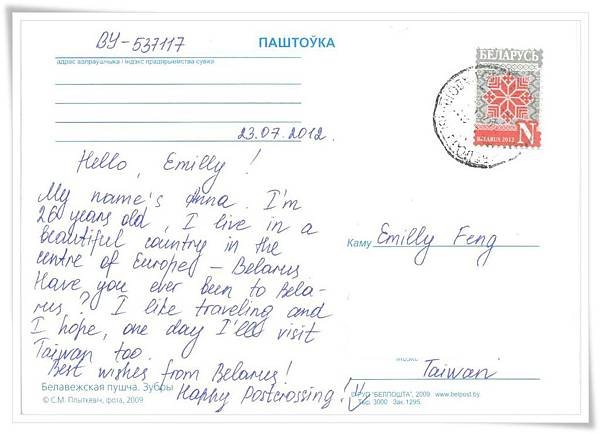 BY-537117
ПАШТОЎКА
адрас адпраўшчыка і індэкс прадпрыемства сувязі
БЕЛАРУСЬ
N
BELARUS 2012
23.07.2012.
Hello, Emilly!
My name's Anna. I'm
26 years old, I live in a
beautiful country in the
centre of Europe – Belarus
Have you ever been to Bela-
rus? I like traveling and
I hope, one day I'll visit
Taiwan too.
Best wishes from Belarus!
Happy Postcrossing!
Каму
Emilly Feng
Індэкс
Taiwan
Белавежская пушча. Зубры
© С.М. Плыткевіч, фота, 2009
© РУП "БЕЛПОШТА", 2009 www.belpost.by
Тыр. 3000 Зак. 1295.